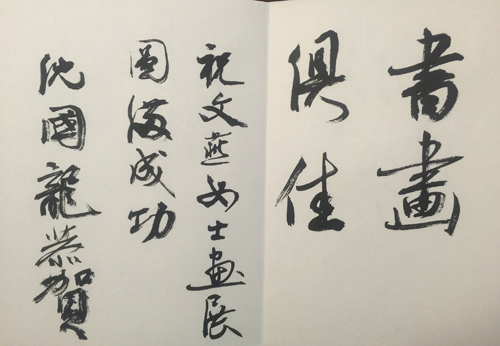 書畫
俱佳
祝文燕女士畫展
圓滿成功
沈國龍恭賀